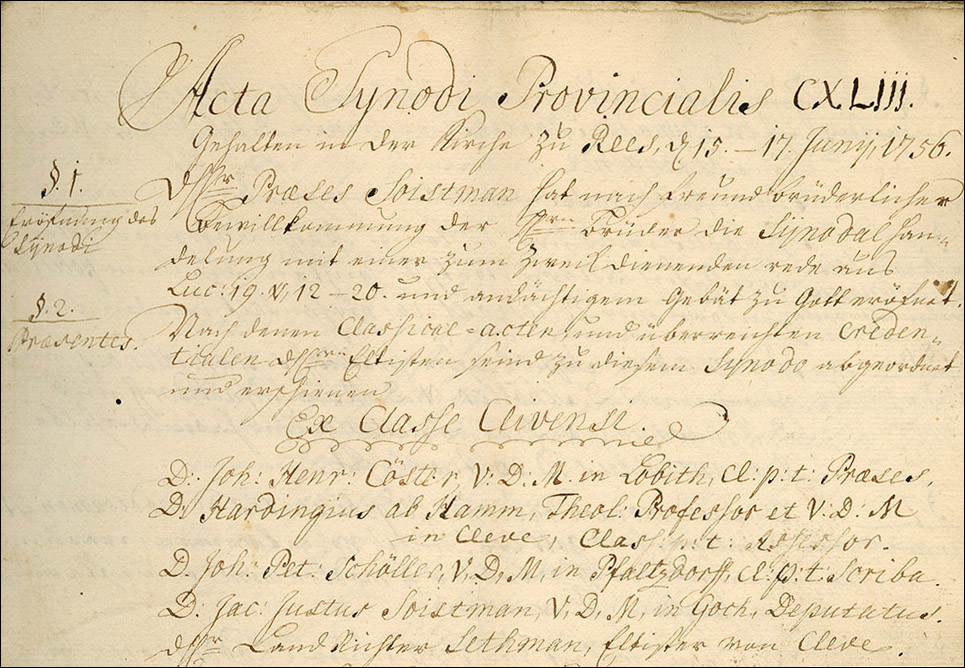 Acta Synodi Provincialis CXLIII.
Gehalten in der Kirche zu Rees, d 15. – 17. Junij, 1756.
§. 1.
Eröfnung des
Synodi
Præses Soistman hat nach freundbrüderlicher
Bewillkommung der Brüder die Synodalhan=
delung mit einer zum Zweck dienenden rede aus
Luc: 19. v, 12 – 20. und andächtigem Gebät zu Gott eröfnet.
§. 2.
Præsentes.
Nach denen Classical=acten, und überreichten Creden=
tialen Eltisten seind zu diesem Synodo abgeordnet
und erschienen
Ex Classe Clivensi.
D: Joh: Henr: Cöster, V: D: M. in Lobith, Cl: p: t: Præses,
D. Hardingius ab Hamm, Theol: Professor et V: D: M
in Cleve, Class: p: t: Assessor.
D. Joh: Pet: Schöller, V, D, M, in Pfaltzdorff, Cl: p: t: Scriba.
D: Jac: Justus Soistman, V, D, M, in Goch, Deputatus.
Land Richter Lethman, Eltister von Cleve.